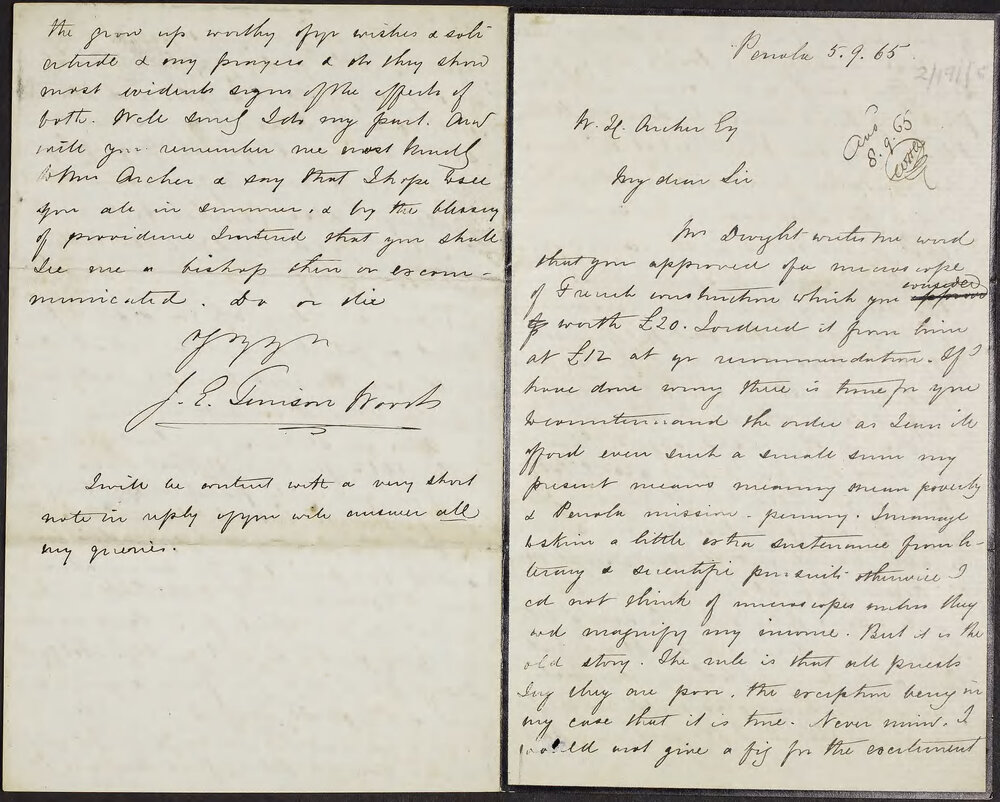 the grow up worthy of yr wishes & soli-
citude & my prayers & do they show
most evidents signs of the effects of
both. Well surely I do my part. And
will you remember me most kindly
to Mrs Archer & say that I hope to see
you all in summer. & by the blessing
of providence I intend that you shall
see me a bishop then or excom-
municated. Do or die
J. E. Tenison Woods
I will be content with a very short
note in reply if you will answer all
my queries.
Penola 5.9.65
2/191/5
Ans
8.9.65
W. H. Archer Esq
My dear Sir
Mr Dwight writes me word
that you approved of a microscope
of French construction which you considered
worth £20. I ordered it from him
at £12 at yr recommendation. If I
have done wrong there is time for you
to countermand the order as I can ill
afford even such a small sum my
present means meaning mean poverty
& Penola mission - penury. I manage
to skim a little extra sustenance from li-
terary & scientific pursuits otherwise I
cd not think of microscopes unless they
wd magnify my income. But it is the
old story. The rule is that all priests
say they are poor, the exception being in
my case that it is true. Never mind. I
would not give a fig for the excitement